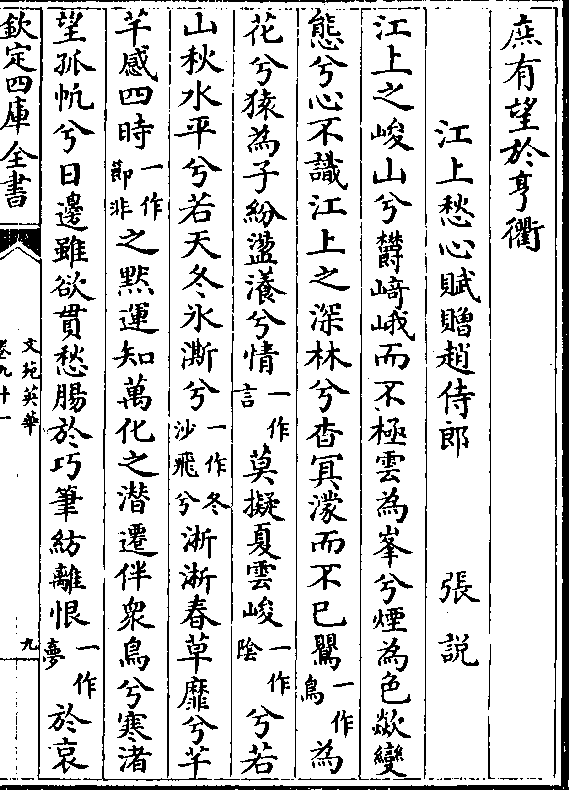 庶有望於亨衢
江上愁心賦贈趙侍郎 張說
江上之峻山兮鬱﨑峨而不極雲為峯兮煙為色歘變
態兮心不識江上之深林兮杳冥濛而不已鸎一作鳥為
花兮猿為子紛盪瀁兮情一作言莫擬夏雲峻一作陰兮若
山秋水平兮若天冬氷澌兮一作冬沙飛兮淅淅春草靡兮芊
芊感四時一作節非之黙運知萬化之潛遷伴衆鳥兮寒渚
望孤帆兮日邊雖欲貫愁腸於巧筆紡離恨一作夢於哀
欽定四庫全書
文苑英華
卷九十一
九